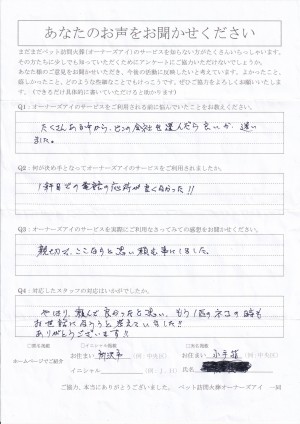 あなたのお声をお聞かせください
まだまだペット訪問火葬(オーナーズアイ)のサービスを知らない方がたくさんいらっしゃいます。
その方たちに少しでも知っていただくためにアンケートにご協力いただけないでしょうか。
あなた様のご意見をお聞かせいただき、今後の活動に反映したいと考えています。よかったこと、
厳しかったこと、どのような些細なことでもけっこうです。ぜひご協力をよろしくお願いいたします。
(できるだけ具体的に書いていただけると助かります)
Q1:オーナーズアイのサービスをご利用される前に悩んでいたことをお教えください。
たくさんある中から、どこの会社を選んだら良いか、迷い
ました。
Q2:何が決め手となってオーナーズアイのサービスをご利用されましたか。
1番目での電話の応対が良くなかった!!
Q3:オーナーズアイのサービスを実際にご利用なさってみての感想をお聞かせください。
親切で、ここならと思い頼む事にしました。
Q4:対応したスタッフの対応はいかがでしたか。
やはり、頼んで良かったと思い、もう1匹のネコの時も
お世話になろうと考えていました!!
ありがとうございます!!
□匿名掲載 □イニシャル掲載 □実名掲載
お住まい 所沢市 (例:中央区) お住まい 小手指 (例:中央区)
ホームページでご紹介
イニシャル (例:J.H) 氏名
ご協力、本当にありがとうございました。 ペット訪問火葬オーナーズアイ 一同